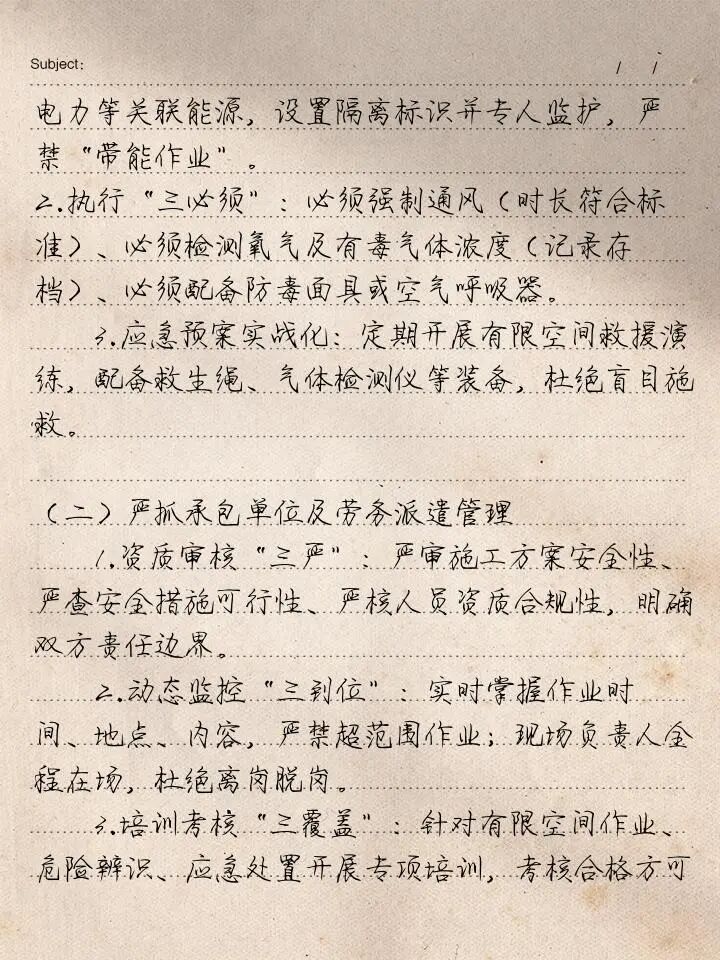 Subject:
/ /
电力等关联能源，设置隔离标识并专人监护，严
禁“带能作业”。
2.执行“三必须”：必须强制通风（时长符合标
准）、必须检测氧气及有毒气体浓度（记录存
档）、必须配备防毒面具或空气呼吸器。
3.应急预案实战化：定期开展有限空间救援演
练，配备救生绳、气体检测仪等装备，杜绝盲目施
救。
（二）严抓承包单位及劳务派遣管理
1.资质审核“三严”：严审施工方案安全性、
严查安全措施可行性、严核人员资质合规性，明确
双方责任边界。
2.动态监控“三到位”：实时掌握作业时
间、地点、内容，严禁超范围作业；现场负责人全
程在场，杜绝离岗脱岗。
3.培训考核“三覆盖”：针对有限空间作业、
危险辨识、应急处置开展专项培训，考核合格方可